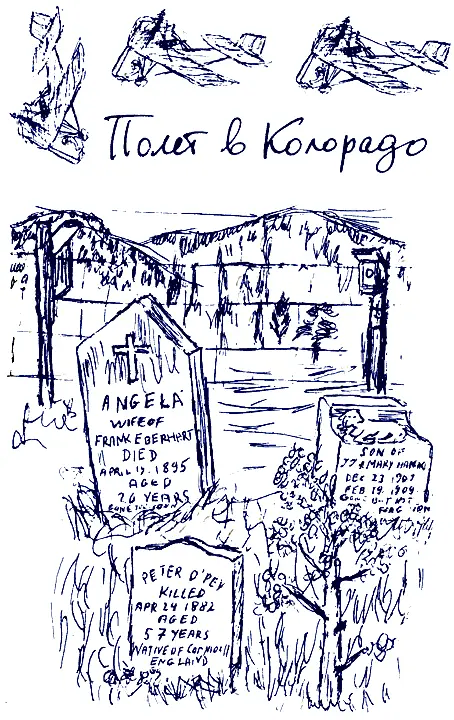 Полет в Колорадо
ANGELA
WIFE OF
FRANK EBERHART
DIED
APRIL 17. 1895
AGED
26 YEARS
SON OF
& MARY
DEC 23 1907
FEB 19. 1909.
PETER O'PEY
KILLED
APR 24 1882
AGED
57 YEARS
NATIVE OF Cornwall
ENGLAND